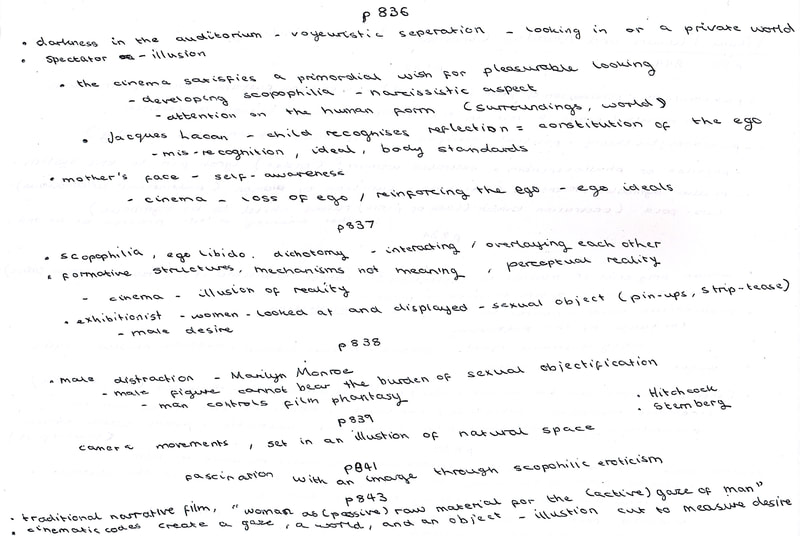 p 836
• darkness in the auditorium - voyeuristic seperation - looking in or a private world
• spectator - illusion
• the cinema satisfies a primordial wish for pleasurable looking
- developing scopophilia - narcissistic aspect
- attention on the human form (surroundings, world)
• Jacques Lacan - child recognises reflection = constitution of the ego
- mis-recognition, ideal, body standards
• mother's face - self-awareness
- cinema - loss of ego / reinforcing the ego - ego ideals
p837
• scopophilia, ego libido. dichotomy - interacting / overlaying each other
• formative structures, mechanisms not meaning, perceptual reality
- cinema - illusion of reality
• exhibitionist - women - looked at and displayed - sexual object (pin-ups, strip-tease)
- male desire
p838
• male distraction - Marilyn Monroe
- male figure cannot bear the burden of sexual objectification
- man controls film phantasy
• Hitchcock
• Sternberg
p839
camera movements, set in an illustion of natural space
p841
fascination with an image through scopohilic eroticism
p843
• traditional narrative film, "woman as (passive) raw material for the (active) gaze of man"
• cinematic codes create a gaze, a world, and an object - illustion cut to measure desire